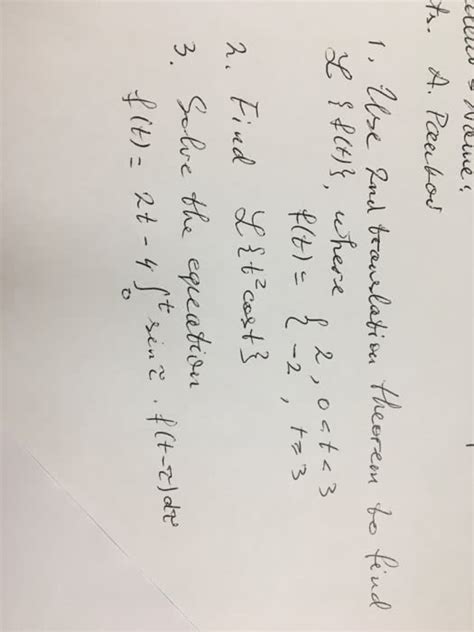 Name:
A.
1. Use 2nd translation theorem to find
L{f(t)}, where
f(t) = { 2, 0<t<3
-2, t≥3
2. Find L{t²cost}
3. Solve the equation
f(t) = 2t - 4∫₀ᵗ sinτ · f(t-τ)dτ